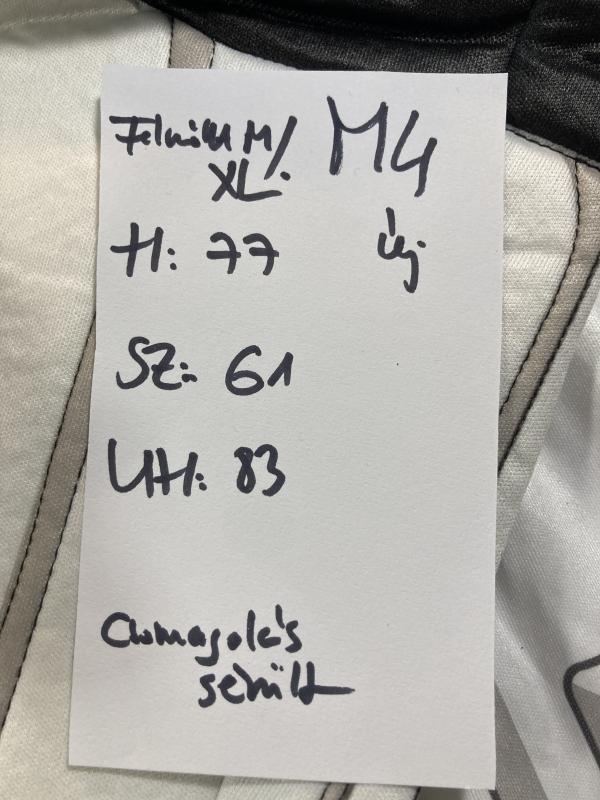 Felnőtt M/ M4
XL.
H: 77 Új
SZ: 61
UH: 83
Csomagolás
sérült